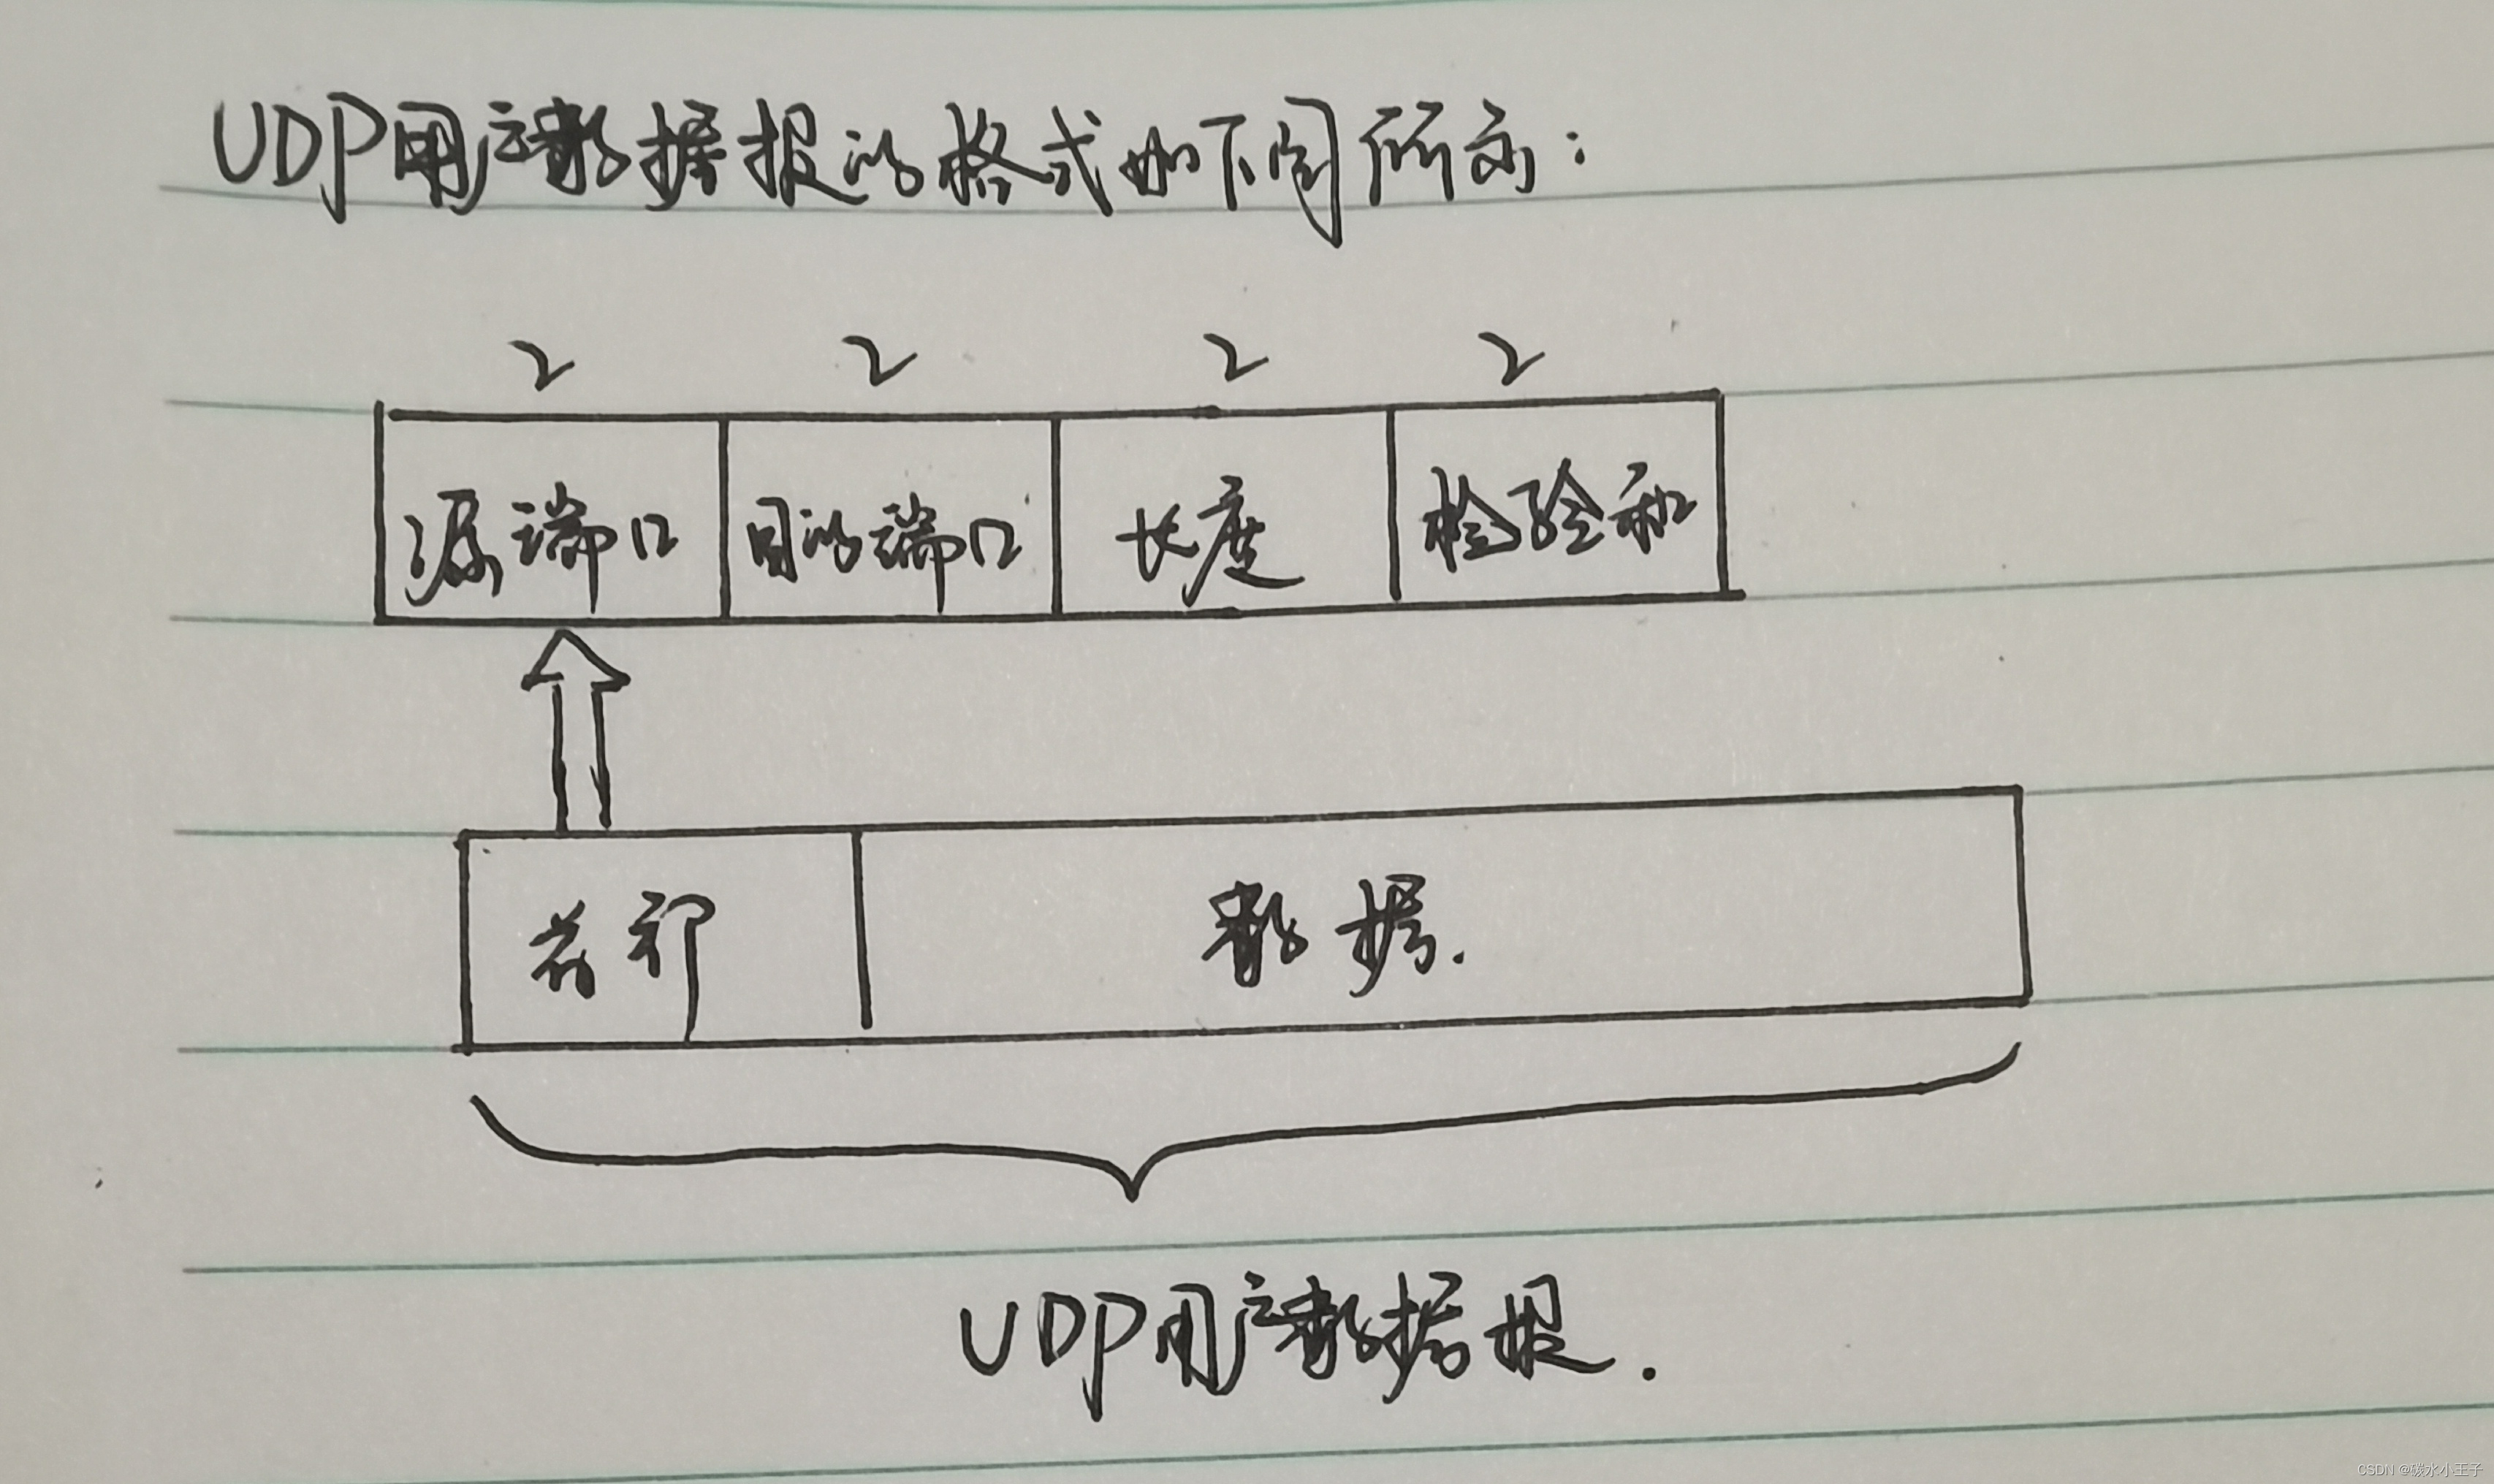 UDP用户数据报的格式如下图所示:
2 2 2 2
源端口 目的端口 长度 检验和
首部 数据.
UDP用户数据报.
CSDN @碳水小王子